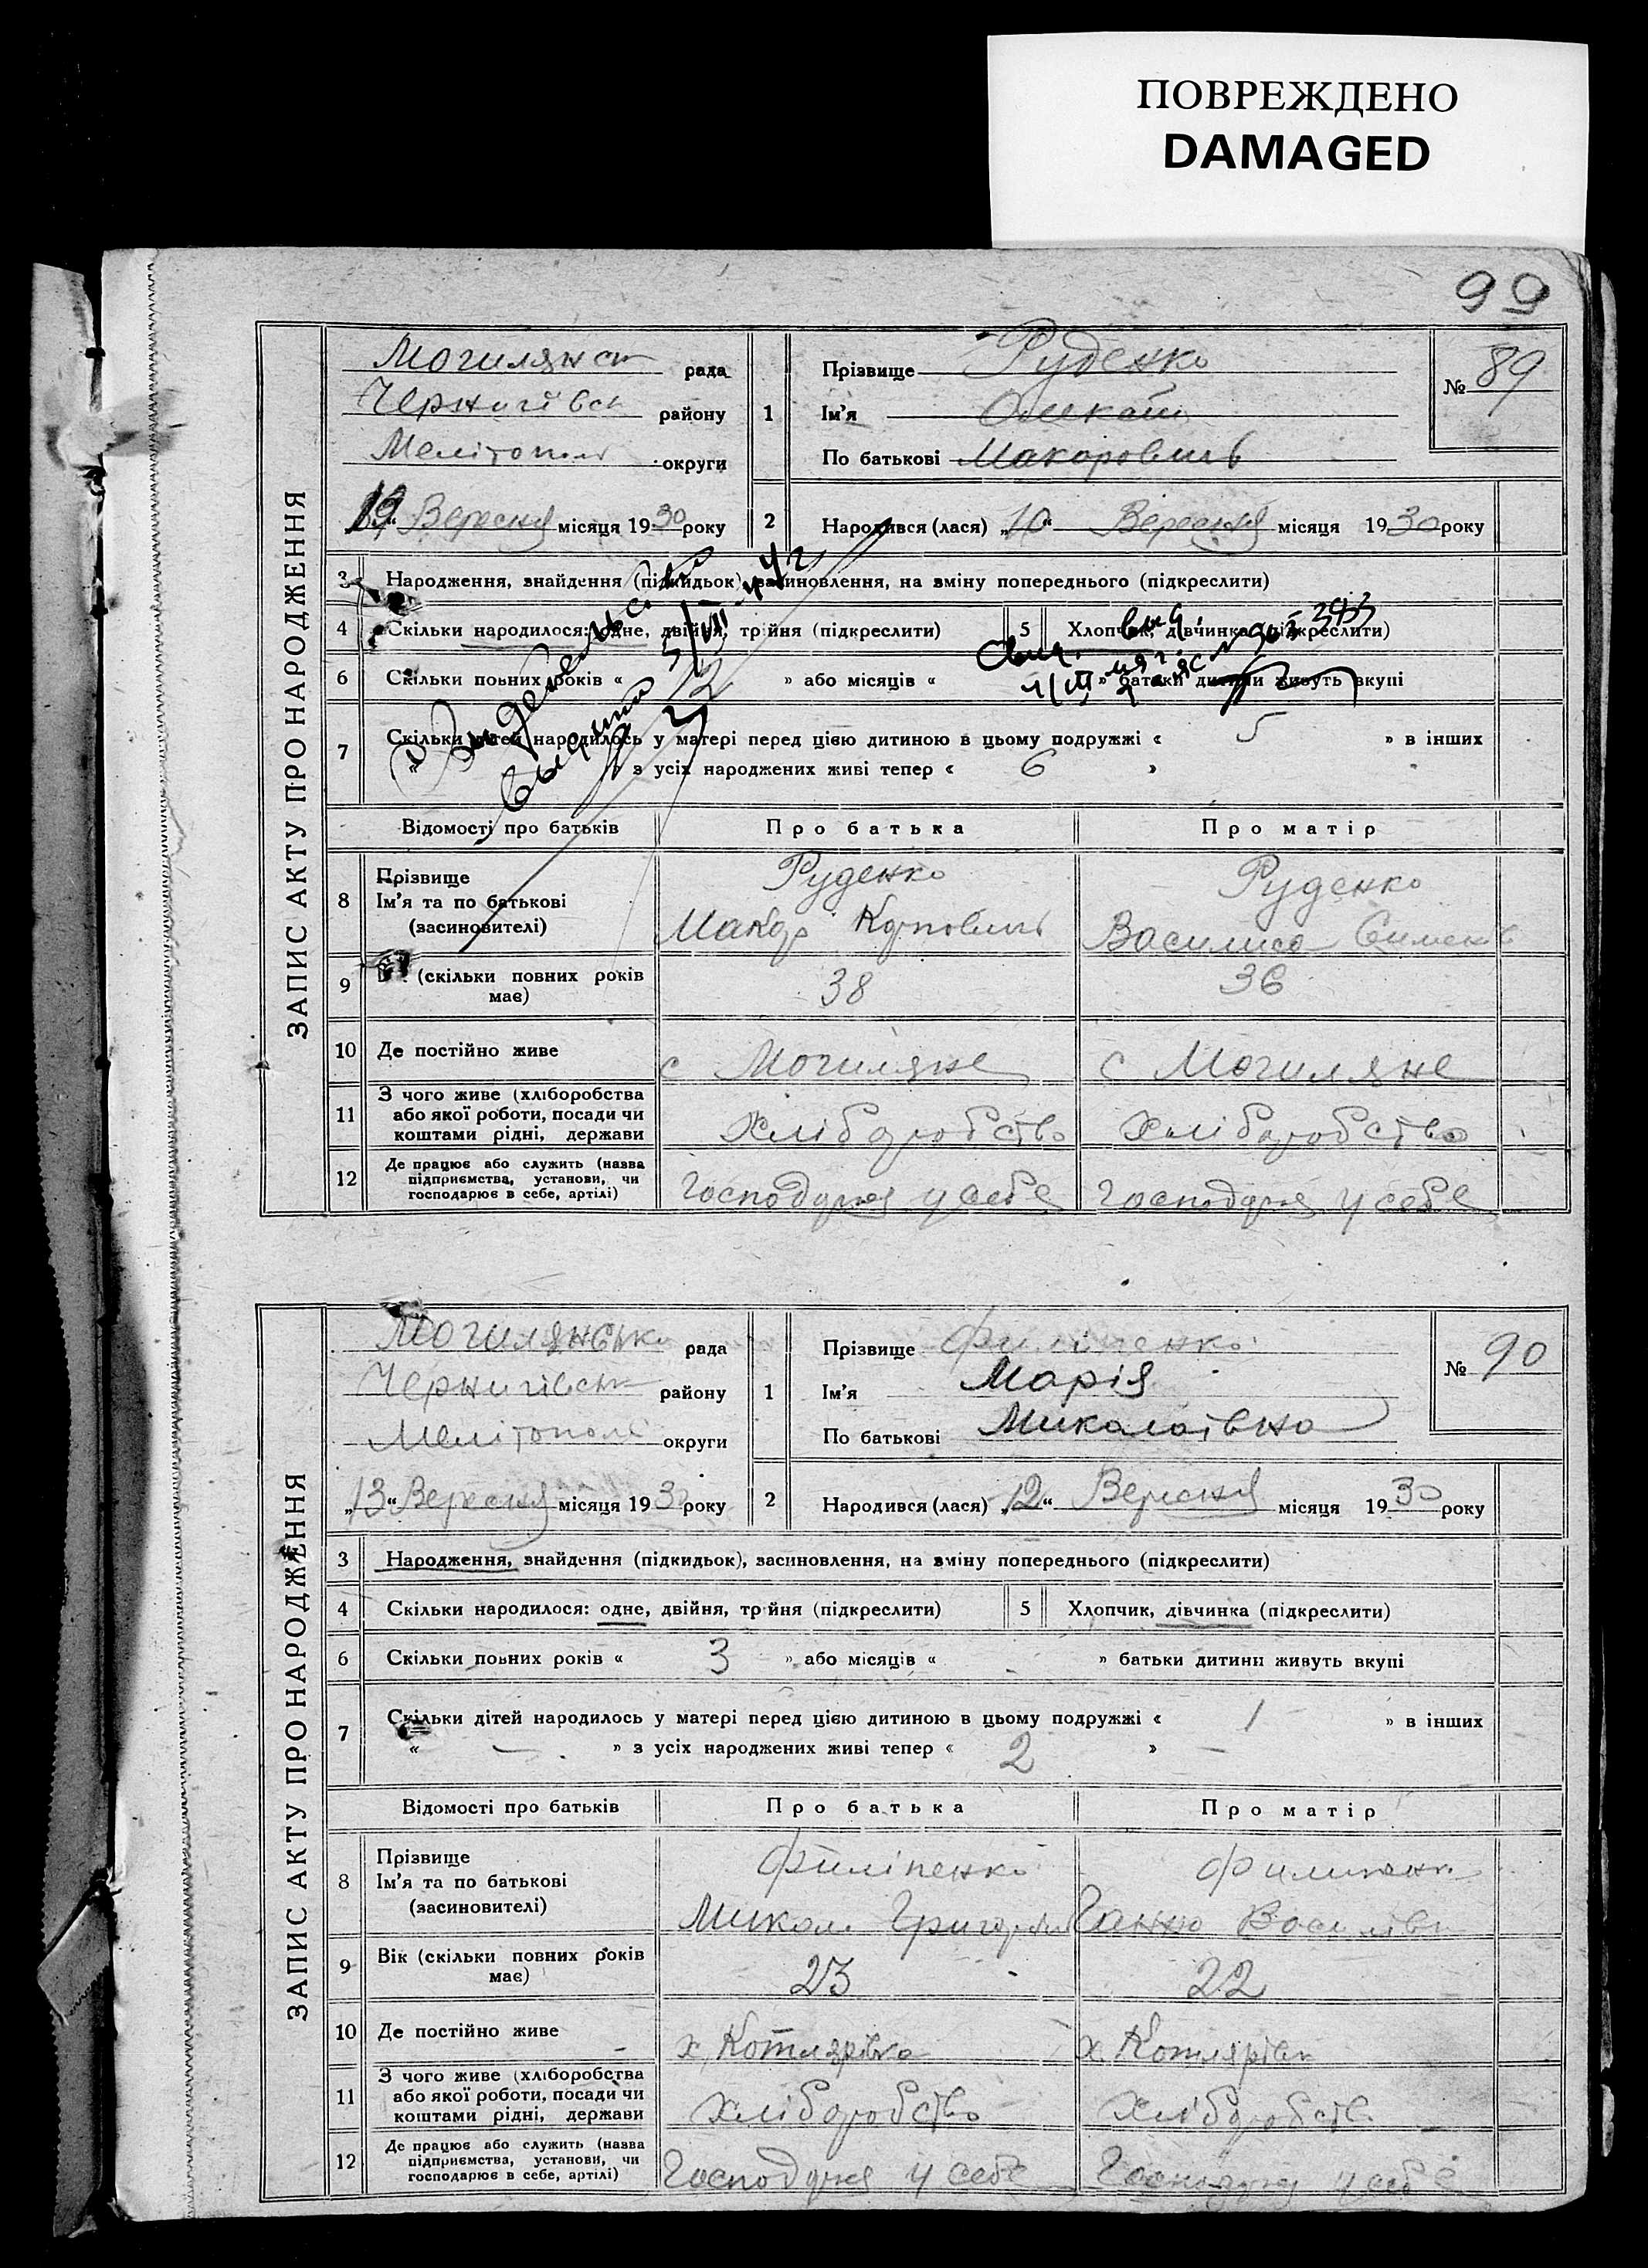 ПОВРЕЖДЕНО
DAMAGED
99
ЗАПИС АКТУ ПРО НАРОДЖЕННЯ
Могилянськ рада
Чернигівськ району
Мелітополь округи
Вересня місяця 1930 року
1
Прізвище Руденко
Ім'я
По батькові Макарович
№ 89
2
Народився (лася) „10“ Вересня місяця 1930 року
3
Народження, знайдення (підкидьок), засиновлення, на зміну попереднього (підкреслити)
4
Скільки народилося: одне, двійня, трійня (підкреслити)
5
Хлопчик, дівчинка (підкреслити)
6
Скільки повних років « 12 » або місяців « » батьки дитини живуть вкупі
7
Скільки дітей народилось у матері перед цією дитиною в цьому подружжі « 5 » в інших
« » з усіх народжених живі тепер « 6 »
Відомості про батьків
Про батька
Про матір
8
Прізвище
Ім'я та по батькові
(засиновителі)
Руденко
Макар Карпович
Руденко
Василиса Симен
9
(скільки повних років має)
38
36
10
Де постійно живе
с Могиляне
с Могиляне
11
З чого живе (хліборобства
або якої роботи, посади чи
коштами рідні, держави
Хліборобство
Хліборобство
12
Де працює або служить (назва
підприємства, установи, чи
господарює в себе, артілі)
Господарює у себе
Господарює у себе
ЗАПИС АКТУ ПРО НАРОДЖЕННЯ
Могилянська рада
Чернигівськ району
Мелітополь округи
„13“ Вересня місяця 1930 року
1
Прізвище Филіпенко
Ім'я Марія
По батькові Миколаівна
№ 90
2
Народився (лася) „12“ Вересня місяця 1930 року
3
Народження, знайдення (підкидьок), засиновлення, на зміну попереднього (підкреслити)
4
Скільки народилося: одне, двійня, трійня (підкреслити)
5
Хлопчик, дівчинка (підкреслити)
6
Скільки повних років « 3 » або місяців « » батьки дитини живуть вкупі
7
Скільки дітей народилось у матері перед цією дитиною в цьому подружжі « 1 » в інших
« — » з усіх народжених живі тепер « 2 » —
Відомості про батьків
Про батька
Про матір
8
Прізвище
Ім'я та по батькові
(засиновителі)
Филіпенко
Микола Григорович
Филипенк
Ганна Василівн
9
Вік (скільки повних років має)
23
22
10
Де постійно живе
х. Котлярівка
х. Котлярівк
11
З чого живе (хліборобства
або якої роботи, посади чи
коштами рідні, держави
Хліборобство
Хліборобств
12
Де працює або служить (назва
підприємства, установи, чи
господарює в себе, артілі)
Господарює у себе
Господарює у себе